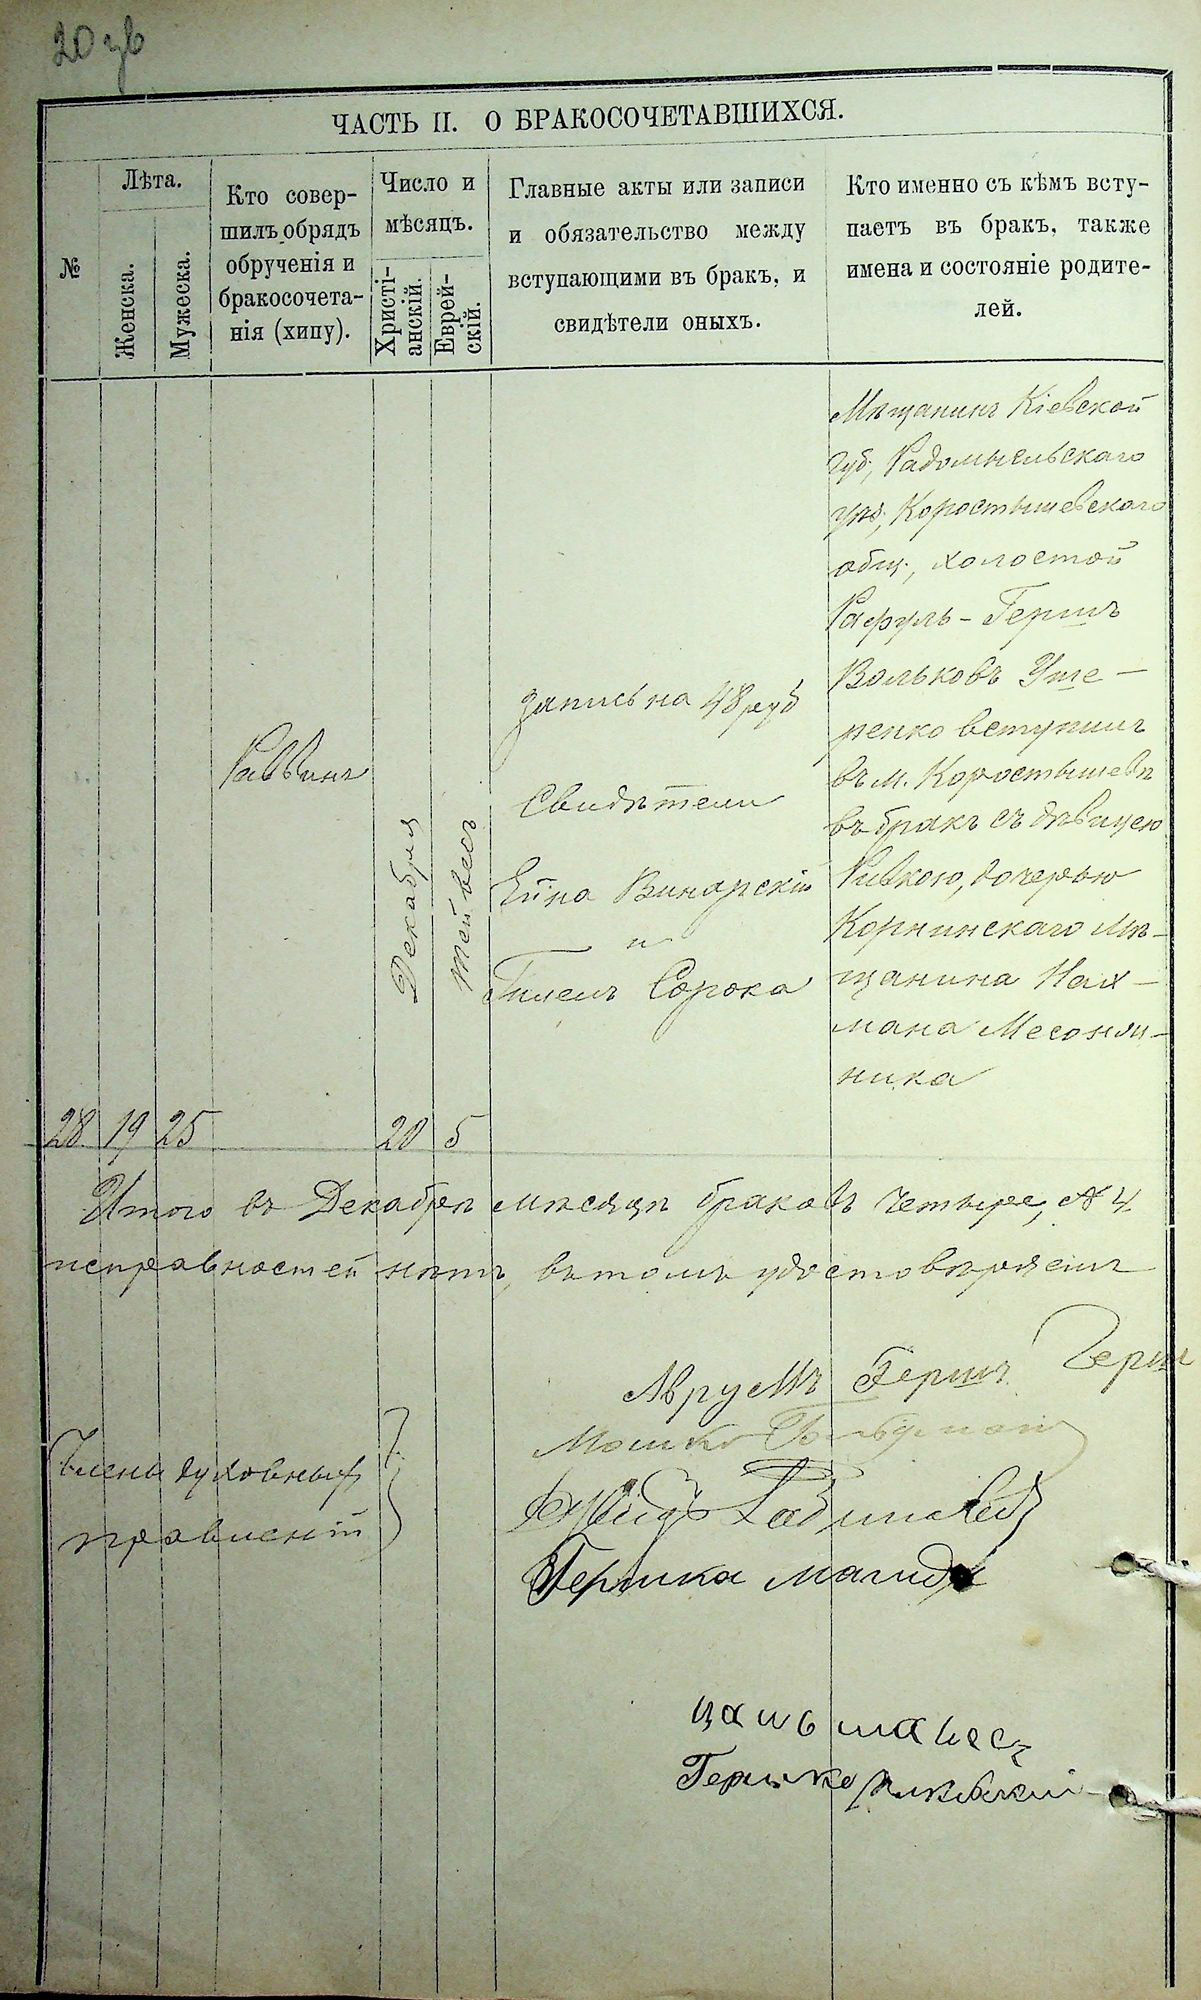 20 зв
ЧАСТЬ II. О БРАКОСОЧЕТАВШИХСЯ.
№
Лѣта.
Женска.
Мужеска.
Кто совер-
шилъ обрядъ
обрученія и
бракосочета-
нія (хипу).
Число и
мѣсяцъ.
Христі-
анскій.
Еврей-
скій.
Главные акты или записи
и обязательство между
вступающими въ бракъ, и
свидѣтели оныхъ.
Кто именно съ кѣмъ всту-
паетъ въ бракъ, также
имена и состояніе родите-
лей.
28
19
25
Раввинъ
20
Декабря
5
Тейвесъ
Запись на 48 руб
Свидѣтели
Винарскій
и
Гилель Сорока
Мѣщанинъ Кіевской
губ, Радомысльскаго
уѣз, Коростышевскаго
общ, холостой
Рафуль-Гершъ
Вольковъ Уше-
ренко вступилъ
въ м. Коростышевѣ
въ бракъ съ дѣвицею
Ривкою, дочерью
Корнинскаго мѣ-
щанина Нах-
мана Месожни-
ника
Итого въ Декабрѣ мѣсяцѣ браковъ четыре, А 4
исправностей нѣтъ, въ томъ удостовѣряемъ
Аврумъ Гершъ
Мошко
Члены духовныхъ
правленій
Гершка Магидъ
Гершко